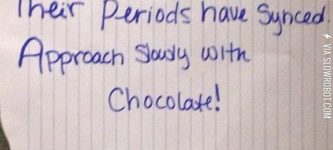 Their Periods have Synced
Approach Slowly with
Chocolate!
VIA SLOWROBOT.COM